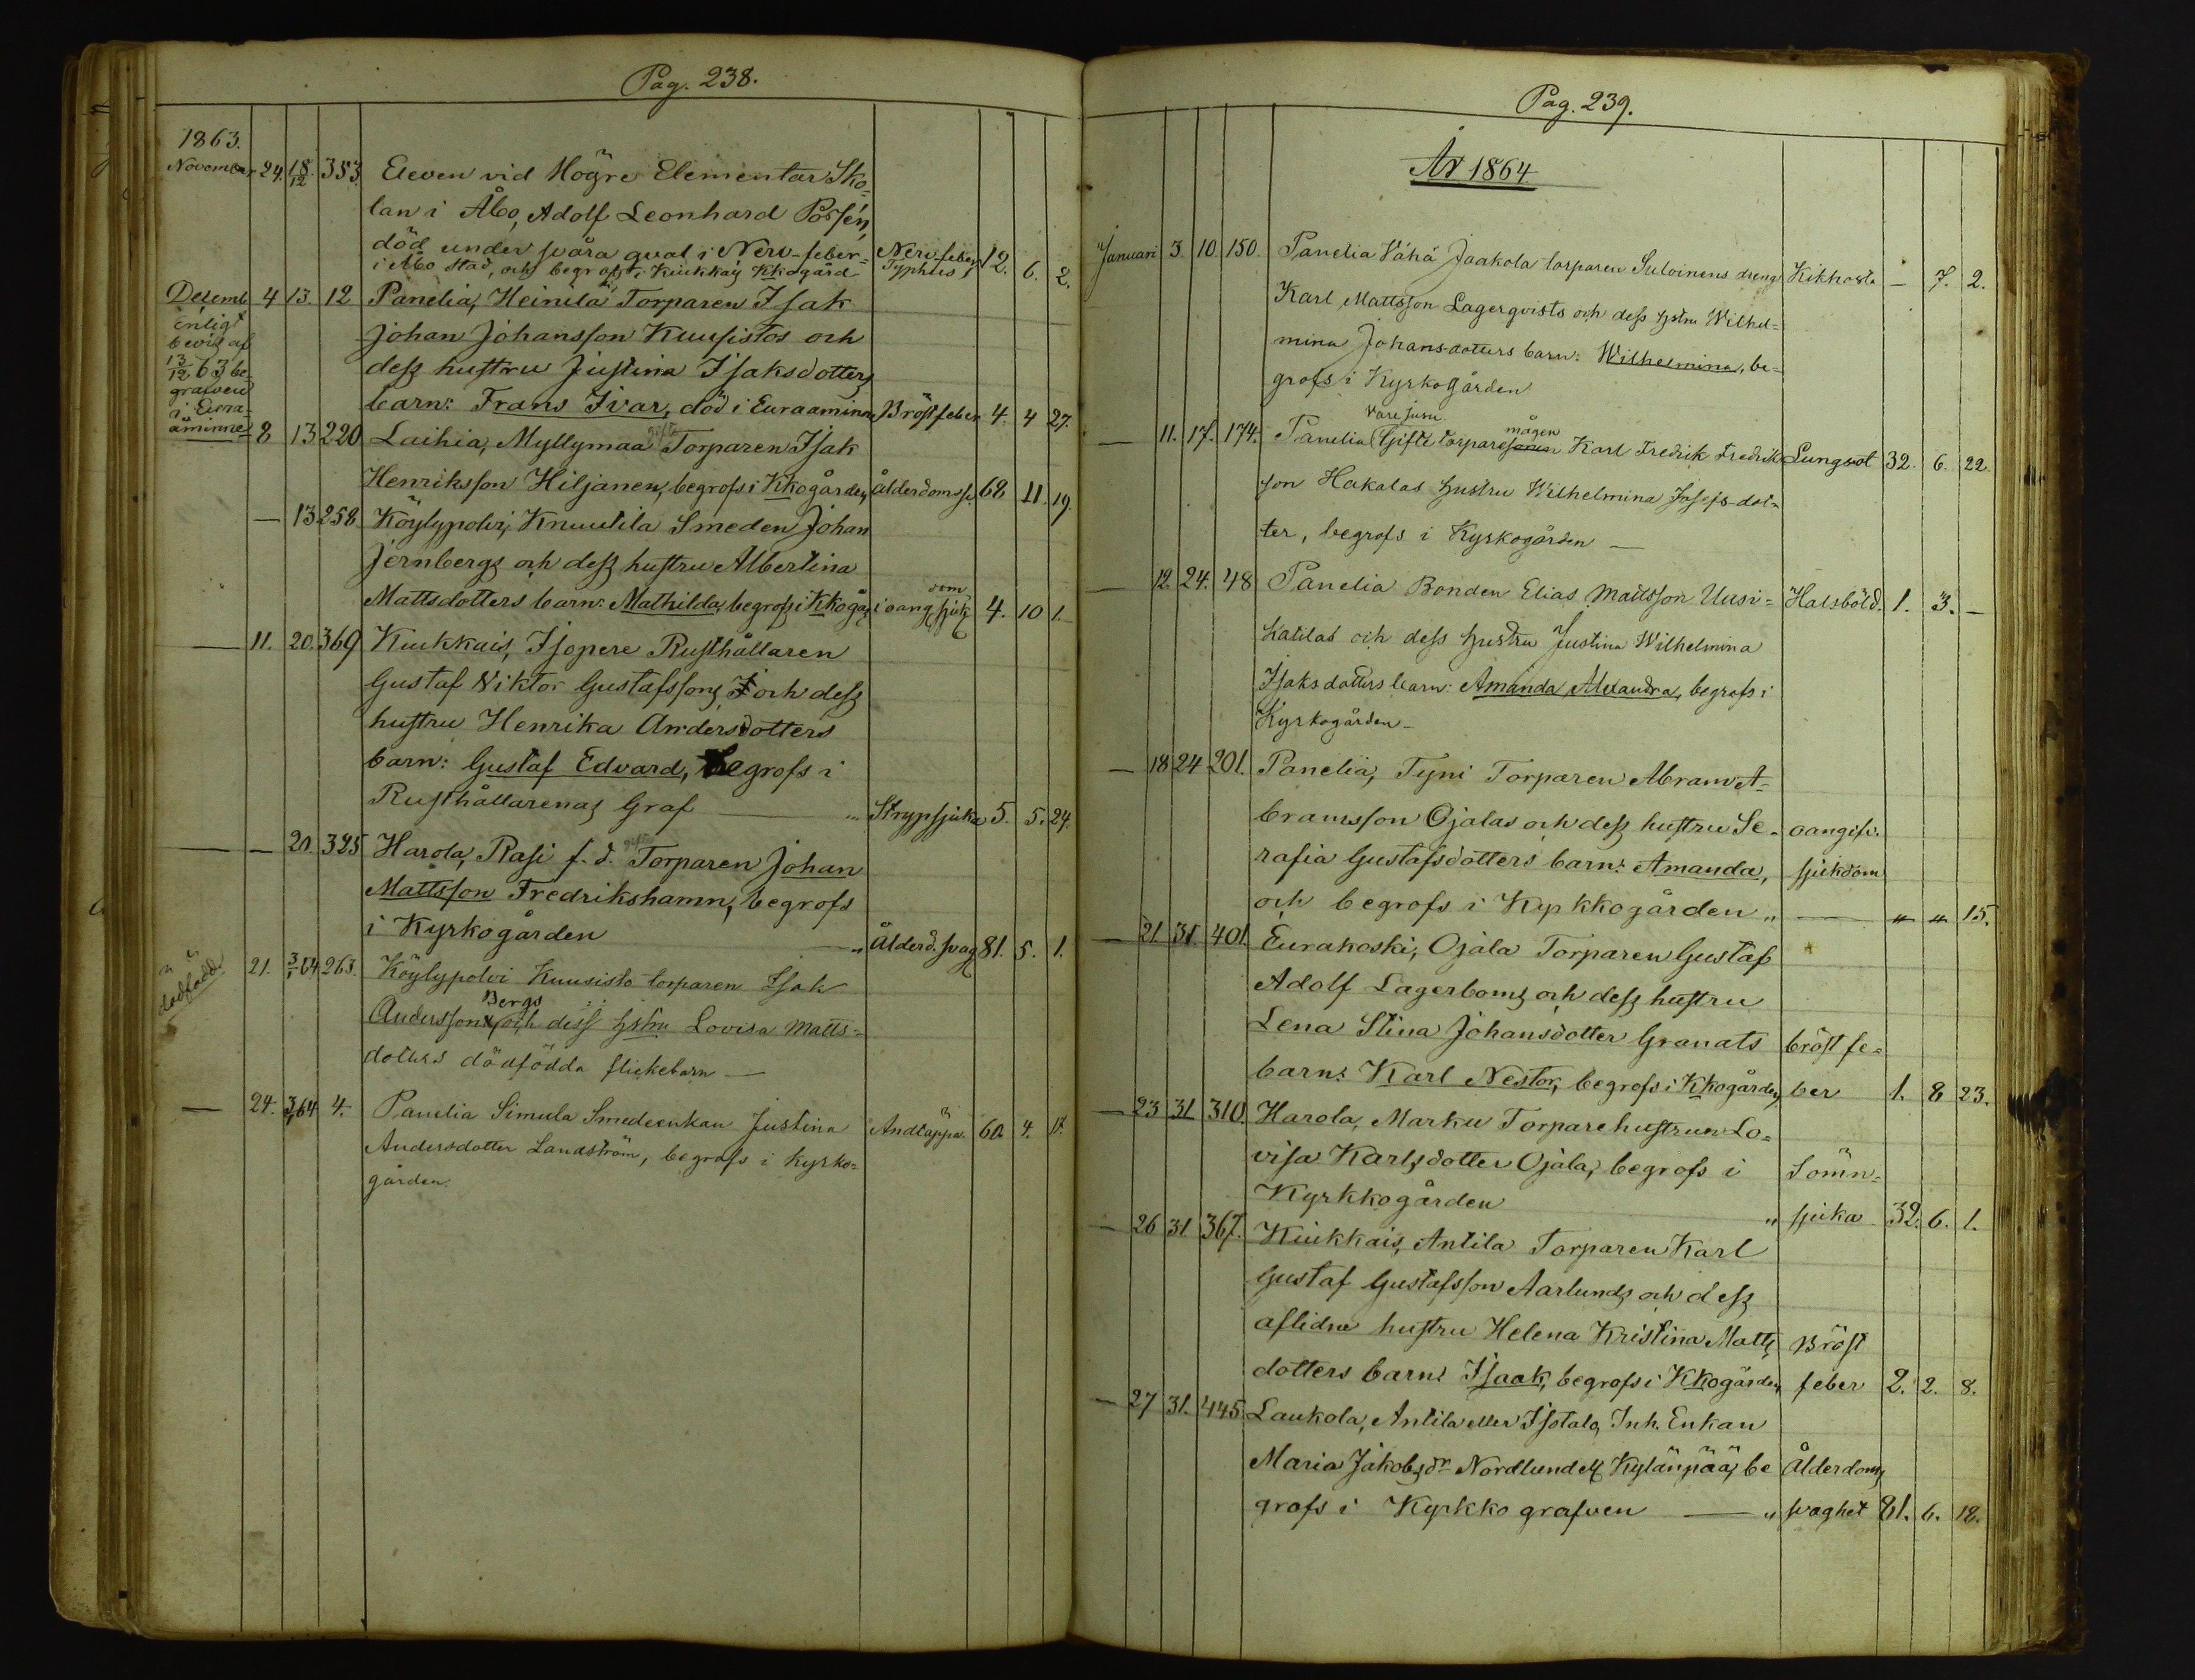 Pag. 238.
1863.
November 24. 18/12 353. Eleven vid Högre Elementar Sko-
lan i Åbo, Adolf Leonhard Porsén,
död under svåra qval i Nerv-feber- Nervfeber
i Åbo stad, och begrofs i Kiukkais Kkogård Typhus 12. 6. 2.
Decemb 4 13. 12 Panelia, Heinilä Torparen Isak
enligt
bevis af
13/12 63 be-
grafven
i Eura-
åminne
Johan Johansson Kuusistos och
dess hustru Justina Isaksdotters
barn: Frans Ivar, död i Euraaminne Bröstfeber 4. 4 27.
8 13 220 Laihia, Myllymaa gifte Torparen Isak
Henriksson Hiljanen, begrofs i Kkogården Ålderdomss. 68 11. 19.
— 13 258 Köylypolvi, Knuutila Smeden Johan
Jernbergs och dess hustru Albertina
Mattsdotters barn: Mathilda, begrofs i Kkogår. i oang. som sjukd. 4. 10 1.
— 11. 20. 369 Kiukkais, Isopere Rusthållaren
Gustaf Viktor Gustafssons och dess
hustru Henrika Andersdotters
barn: Gustaf Edvard, begrofs i
Rusthållarenas Graf — " Strypsjuka 5. 5. 24.
— — 20. 325 Harola, Rasi f. d. gift Torparen Johan
Mattsson Fredrikshamn, begrofs
i Kyrkogården — " Ålderd. svag 81. 5. 1.
dödfödd 21. 3/1 64 263. Köylypolvi Kuusisto torparen Isak
Anderssons Bergs och dess hstru Lovisa Matts-
dotters dödfödda flickebarn —
— 24. 3/1 64 4. Panelia Simula Smedeenkan Justina Andtäppa. 60. 4. 17.
Andersdotter Landström, begrofs i Kyrko-
gården.
Pag. 239.
År 1864
Januari 3. 10. 150. Panelia Vähä Jaakola torparen Suloinens dreng Kikhosta — 7. 2.
Karl Mattsson Lagerqvists och dess hstru Wilhel-
mina Johansdotters barn: Wilhelmina, be-
grofs i Kyrkogården
— 11. 17. 174. Panelia Varesjuni Gifte torparesonen mågen Karl Fredrik Fredrik- Lungsot 32. 6. 22.
son Hakalas hustru Wilhelmina Josefs-dot-
ter, begrofs i Kyrkogården —
— 12. 24. 48 Panelia Bonden Elias Mattsson Uusi- Halsböld. 1. 3. —
katilas och dess hustru Justina Wilhelmina
Isaksdotters barn: Amanda Alexandra, begrofs i
Kyrkogården —
— 18 24 201. Panelia, Tyni Torparen Abram A-
bramsson Ojalas och dess hustru Se- oangifv.
rafia Gustafsdotters barn: Amanda, sjukdom
och begrofs i Kyrkkogården " — " " 15.
— 21. 31. 401. Eurakoski, Ojala Torparen Gustaf
Adolf Lagerboms och dess hustru
Lena Stina Johansdotter Granats bröst fe-
barn: Karl Nestor, begrofs i Kkogården ber 1. 8 23.
— 23 31 310. Harola, Marku Torparehustrun Lo-
visa Karlsdotter Ojala, begrofs i Sömn-
Kyrkkogården " sjuka 32. 6. 1.
— 26 31 367. Kiukkais, Antila Torparen Karl
Gustaf Gustafsson Aarlunds och dess
aflidne hustru Helena Kristina Matts Bröst
dotters barn: Isaak, begrofs i Kkogården feber 2. 2. 8.
— 27 31. 445. Laukola, Antila eller Isotalo, Inh. Enkan
Maria Jakobsdr Nordlund el. Kylänpää, be Ålderdoms
grofs i Kyrkko grafven — " svaghet 81. 6. 18.